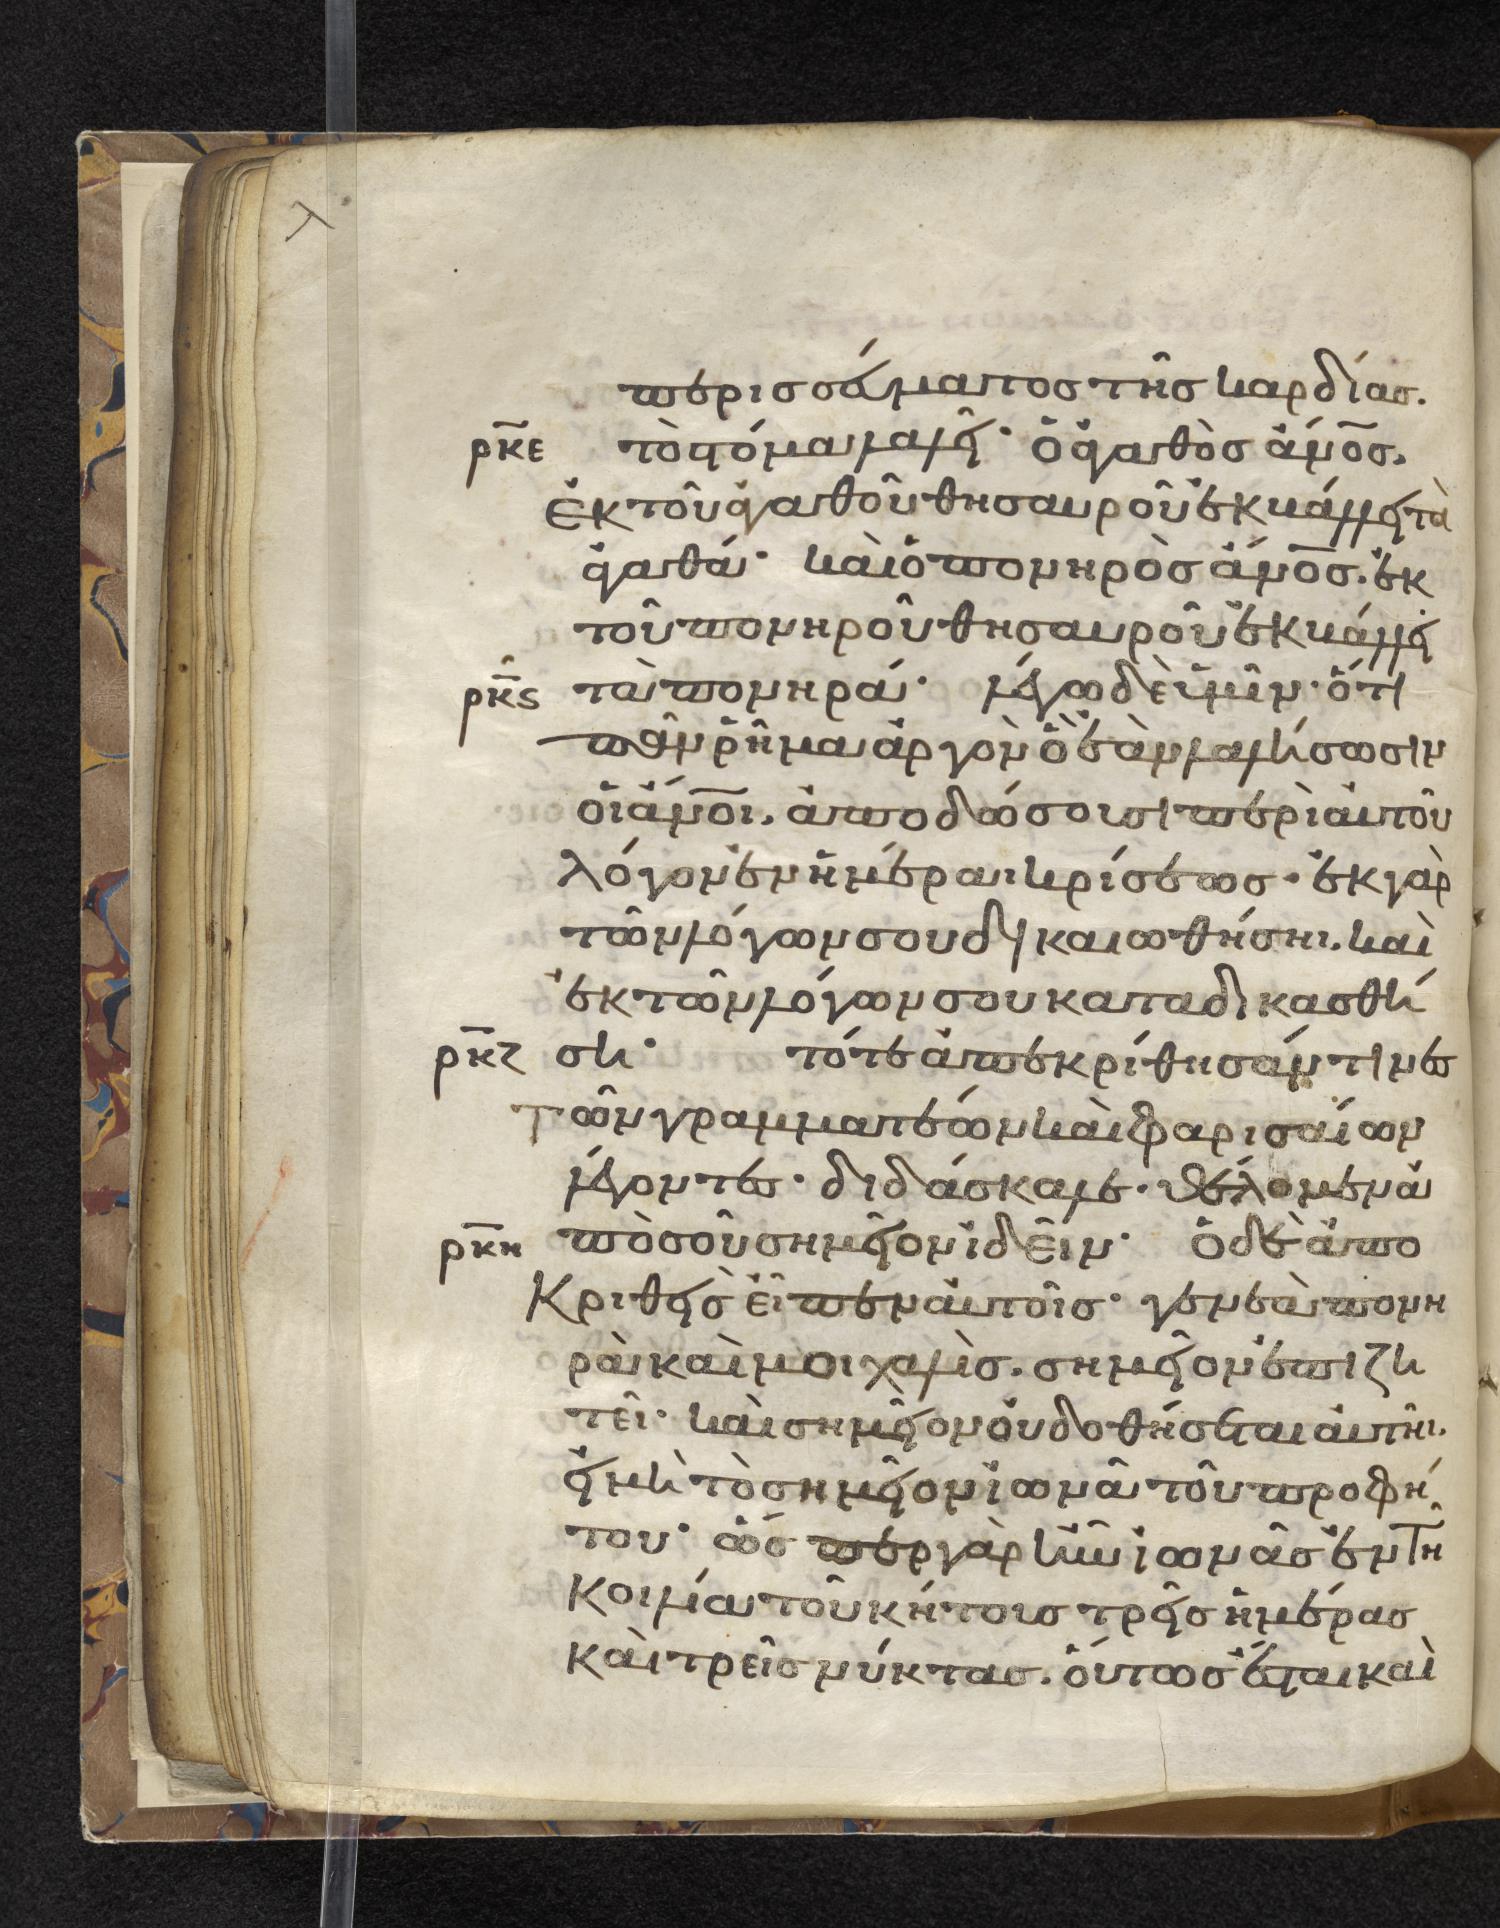 περισσεύματος τῆς καρδίας.
ρκε τὸ στόμα λαλεῖ· ὁ ἀγαθὸς ἄνος.
ἐκ τοῦ ἀγαθοῦ θησαυροῦ ἐκβάλλει τὰ
ἀγαθά· καὶ ὁ πονηρὸς ἄνος. ἐκ
τοῦ πονηροῦ θησαυροῦ ἐκβάλλει
ρκς τὰ πονηρά· λέγω δὲ ὑμῖν· ὅτι
πᾶν ῥῆμα ἀργὸν ὃ ἐὰν λαλήσωσιν
οἱ ἄνοι. ἀποδώσουσι περὶ αὐτοῦ
λόγον ἐν ἡμέραι κρίσεως· ἐκ γὰρ
τῶν λόγων σου δικαιωθήσηι. καὶ
ἐκ τῶν λόγων σου καταδικασθή
ρκζ ση· τότε ἀπεκρίθησάν τινες
τῶν γραμματέων καὶ φαρισαίων
λέγοντες· διδάσκαλε· θέλομεν ἀ
ρκη πὸ σοῦ σημεῖον ἰδεῖν· ὁ δὲ ἀπο
κριθεὶς εἶπεν αὐτοῖς· γενεὰ πονη
ρὰ καὶ μοιχαλὶς. σημεῖον ἐπιζη
τεῖ· καὶ σημεῖον οὐ δοθήσεται αὐτῆι.
εἰ μὴ τὸ σημεῖον ἰωνᾶ τοῦ προφή
του· ὥσπερ γὰρ ἦν ἰωνᾶς ἐν τῆ
κοιλία τοῦ κήτους τρεῖς ἡμέρας
καὶ τρεῖς νύκτας. οὕτως ἔσται καὶ